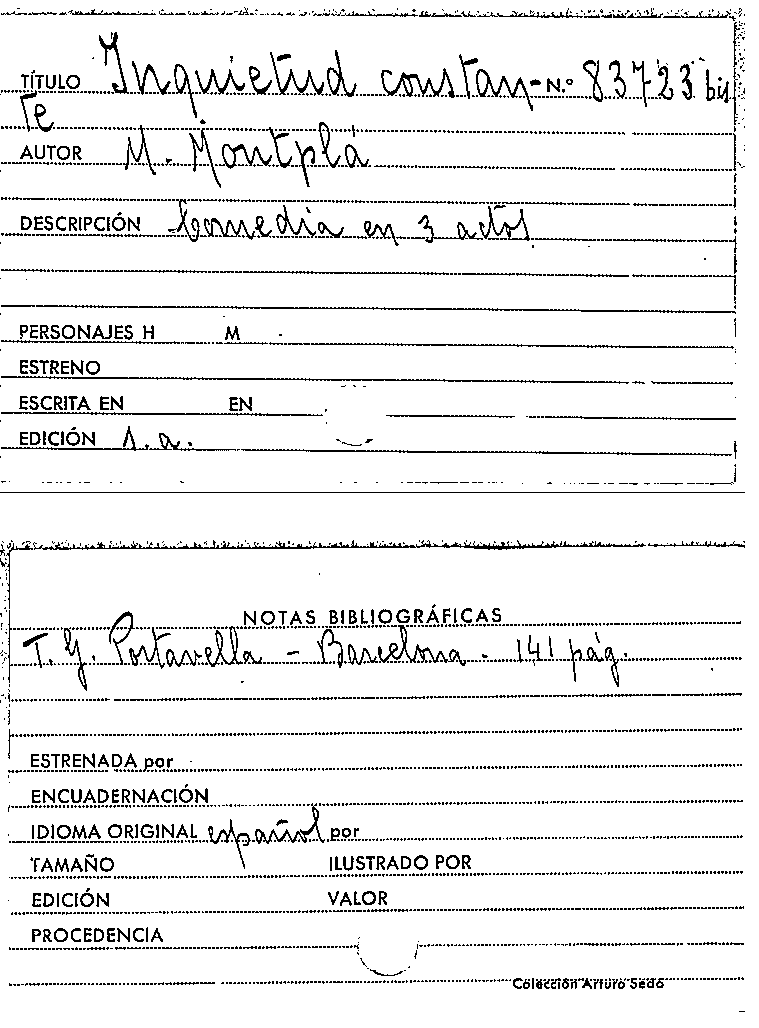 TÍTULO Inquietud constan- N.º 83723 bis
te
AUTOR M. Montplá
DESCRIPCIÓN Comedia en 3 actos
PERSONAJES H M
ESTRENO
ESCRITA EN EN
EDICIÓN 1. a.
NOTAS BIBLIOGRÁFICAS
T. G. Portavella - Barcelona - 141 pág.
ESTRENADA por
ENCUADERNACIÓN
IDIOMA ORIGINAL español por
TAMAÑO ILUSTRADO POR
EDICIÓN VALOR
PROCEDENCIA
Colección Arturo Sedó